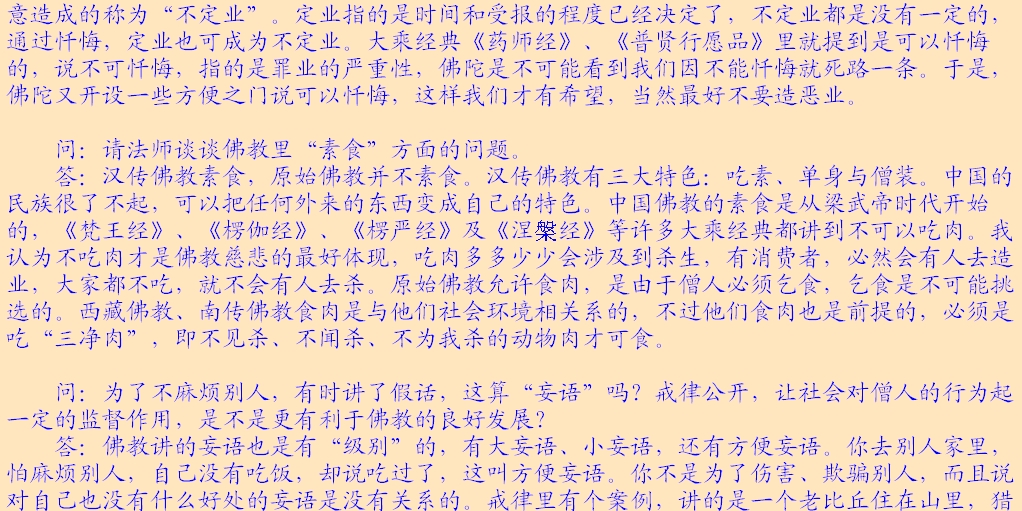 意造成的称为“不定业”。定业指的是时间和受报的程度已经决定了，不定业都是没有一定的，
通过忏悔，定业也可成为不定业。大乘经典《药师经》、《普贤行愿品》里就提到是可以忏悔
的，说不可忏悔，指的是罪业的严重性，佛陀是不可能看到我们因不能忏悔就死路一条。于是，
佛陀又开设一些方便之门说可以忏悔，这样我们才有希望，当然最好不要造恶业。
问：请法师谈谈佛教里“素食”方面的问题。
答：汉传佛教素食，原始佛教并不素食。汉传佛教有三大特色：吃素、单身与僧装。中国的
民族很了不起，可以把任何外来的东西变成自己的特色。中国佛教的素食是从梁武帝时代开始
的，《梵王经》、《楞伽经》、《楞严经》及《涅槃经》等许多大乘经典都讲到不可以吃肉。我
认为不吃肉才是佛教慈悲的最好体现，吃肉多多少少会涉及到杀生，有消费者，必然会有人去造
业，大家都不吃，就不会有人去杀。原始佛教允许食肉，是由于僧人必须乞食，乞食是不可能挑
选的。西藏佛教、南传佛教食肉是与他们社会环境相关系的，不过他们食肉也是前提的，必须是
吃“三净肉”，即不见杀、不闻杀、不为我杀的动物肉才可食。
问：为了不麻烦别人，有时讲了假话，这算“妄语”吗？戒律公开，让社会对僧人的行为起
一定的监督作用，是不是更有利于佛教的良好发展？
答：佛教讲的妄语也是有“级别”的，有大妄语、小妄语，还有方便妄语。你去别人家里，
怕麻烦别人，自己没有吃饭，却说吃过了，这叫方便妄语。你不是为了伤害、欺骗别人，而且说
对自己也没有什么好处的妄语是没有关系的。戒律里有个案例，讲的是一个老比丘住在山里，猎